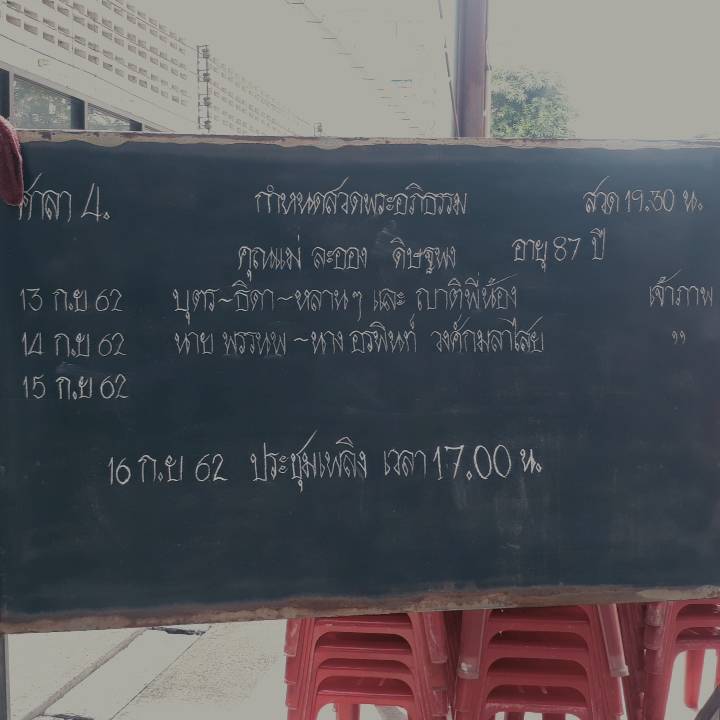 ศาลา 4. กำหนดสวดพระอภิธรรม สวด 19.30 น.
คุณแม่ ละออง ดิษฐพง อายุ 87 ปี
13 ก.ย 62 บุตร~ธิดา~หลานๆ และ ญาติพี่น้อง เจ้าภาพ
14 ก.ย 62 นาย พรรนพ ~นาง อรพินท์ วงศ์กมลาไสย ,,
15 ก.ย 62
16 ก.ย 62 ประชุมเพลิง เวลา 17.00 น.